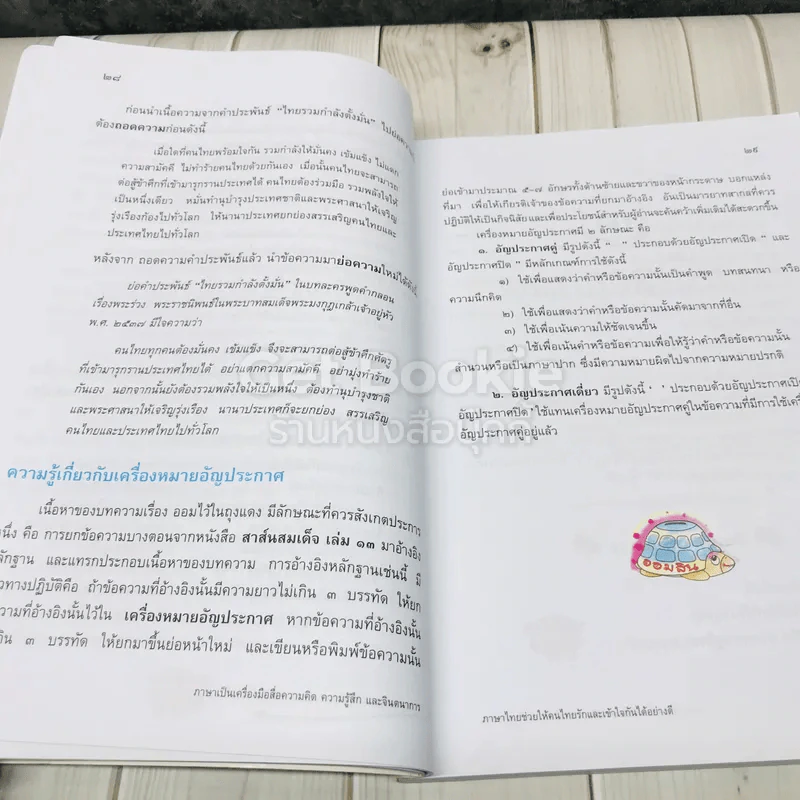 ๒๘
ก่อนนำเนื้อความจากคำประพันธ์ “ไทยรวมกำลังตั้งมั่น” ไปย่อความ
ต้องถอดความก่อนดังนี้
เมื่อใดที่คนไทยพร้อมใจกัน รวมกำลังให้มั่นคง เข้มแข็ง ไม่แตก
ความสามัคคี ไม่ทำร้ายคนไทยด้วยกันเอง เมื่อนั้นคนไทยจะสามารถ
ต่อสู้ข้าศึกที่เข้ามารุกรานประเทศได้ คนไทยต้องร่วมมือ รวมพลังใจให้
เป็นหนึ่งเดียว หมั่นทำนุบำรุงประเทศชาติและพระศาสนาให้เจริญ
รุ่งเรืองก้องไปทั่วโลก ให้นานาประเทศยกย่องสรรเสริญคนไทยและ
ประเทศไทยไปทั่วโลก
หลังจาก ถอดความคำประพันธ์แล้ว นำข้อความมาย่อความใหม่ได้ดังนี้
ย่อคำประพันธ์ “ไทยรวมกำลังตั้งมั่น” ในบทละครพูดคำกลอน
เรื่องพระร่วง พระราชนิพนธ์ในพระบาทสมเด็จพระมงกุฎเกล้าเจ้าอยู่หัว
พ.ศ. ๒๕๓๗ มีใจความว่า
คนไทยทุกคนต้องมั่นคง เข้มแข็ง จึงจะสามารถต่อสู้ข้าศึกศัตรู
ที่เข้ามารุกรานประเทศไทยได้ อย่าแตกความสามัคคี อย่ามุ่งทำร้าย
กันเอง นอกจากนั้นยังต้องรวมพลังใจให้เป็นหนึ่ง ต้องทำนุบำรุงชาติ
และพระศาสนาให้เจริญรุ่งเรือง นานาประเทศก็จะยกย่อง สรรเสริญ
คนไทยและประเทศไทยไปทั่วโลก
ความรู้เกี่ยวกับเครื่องหมายอัญประกาศ
เนื้อหาของบทความเรื่อง ออมไว้ในถุงแดง มีลักษณะที่ควรสังเกตประการ
นึ่ง คือ การยกข้อความบางตอนจากหนังสือ สาส์นสมเด็จ เล่ม ๑๓ มาอ้างอิง
ลักฐาน และแทรกประกอบเนื้อหาของบทความ การอ้างอิงหลักฐานเช่นนี้ มี
วทางปฏิบัติคือ ถ้าข้อความที่อ้างอิงนั้นมีความยาวไม่เกิน ๓ บรรทัด ให้ยก
วามที่อ้างอิงนั้นไว้ใน เครื่องหมายอัญประกาศ หากข้อความที่อ้างอิงนั้น
กิน ๓ บรรทัด ให้ยกมาขึ้นย่อหน้าใหม่ และเขียนหรือพิมพ์ข้อความนั้น
ภาษาเป็นเครื่องมือสื่อความคิด ความรู้สึก และจินตนาการ
๒๙
ย่อเข้ามาประมาณ ๕-๗ อักษรทั้งด้านซ้ายและขวาของหน้ากระดาษ บอกแหล่ง
ที่มา เพื่อให้เกียรติเจ้าของข้อความที่ยกมาอ้างอิง อันเป็นมารยาทสากลที่ควร
ปฏิบัติให้เป็นกิจนิสัย และเพื่อประโยชน์สำหรับผู้อ่านจะค้นคว้าเพิ่มเติมได้สะดวกขึ้น
เครื่องหมายอัญประกาศมี ๒ ลักษณะ คือ
๑. อัญประกาศคู่ มีรูปดังนี้ “ ” ประกอบด้วยอัญประกาศเปิด “ และ
อัญประกาศปิด ” มีหลักเกณฑ์การใช้ดังนี้
๑) ใช้เพื่อแสดงว่าคำหรือข้อความนั้นเป็นคำพูด บทสนทนา หรือ
ความนึกคิด
๒) ใช้เพื่อแสดงว่าคำหรือข้อความนั้นคัดมาจากที่อื่น
๓) ใช้เพื่อเน้นความให้ชัดเจนขึ้น
๔) ใช้เพื่อเน้นคำหรือข้อความเพื่อให้รู้ว่าคำหรือข้อความนั้น
สำนวนหรือเป็นภาษาปาก ซึ่งมีความหมายผิดไปจากความหมายปรกติ
๒. อัญประกาศเดี่ยว มีรูปดังนี้ ‘ ’ ประกอบด้วยอัญประกาศเปิด
อัญประกาศปิด ’ ใช้แทนเครื่องหมายอัญประกาศคู่ในข้อความที่มีการใช้เครื่
อัญประกาศคู่อยู่แล้ว
ออมสิน
ภาษาไทยช่วยให้คนไทยรักและเข้าใจกันได้อย่างดี
Get Bookie
ร้านหนังสือบุกกี้